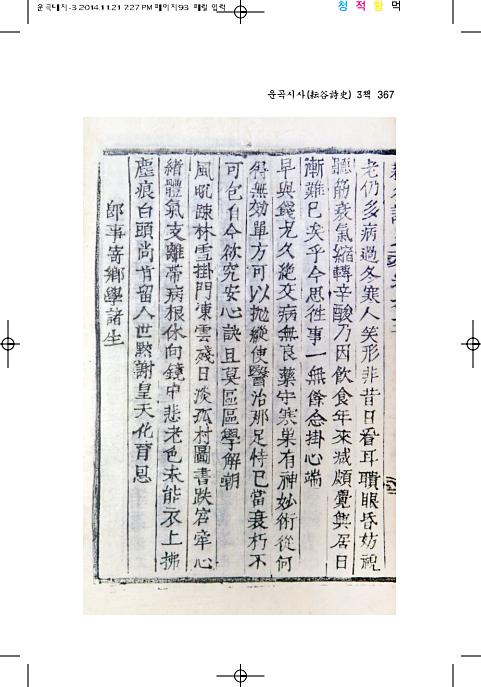 운곡대지-3 2014.11.21 7:27 PM 페이지93 매일 입력
청 적 황 먹
운곡시사(耘谷詩史) 3책 367
老仍多病過冬寒人笑形非昔日看耳聵眼昏妨視
聽筋衰氣縮轉辛酸乃因飮食年來減頗覺興居日
漸難已矣乎今思徃事一無餘念掛心端
早與錢兄久絶交病無良藥守寒巢有神妙術從何
得無効單方可以抛縱使醫治那足恃已當衰朽不
可包自今欲究安心訣且莫區區學解嘲
風吼踈林雪掛門凍雲殘日淡孤村圖書跌宕牽心
緖體氣支離帶病根休向鏡中悲老色未能衣上拂
塵痕白頭尙肯留人世黙謝皇天化育恩
卽事寄鄕學諸生